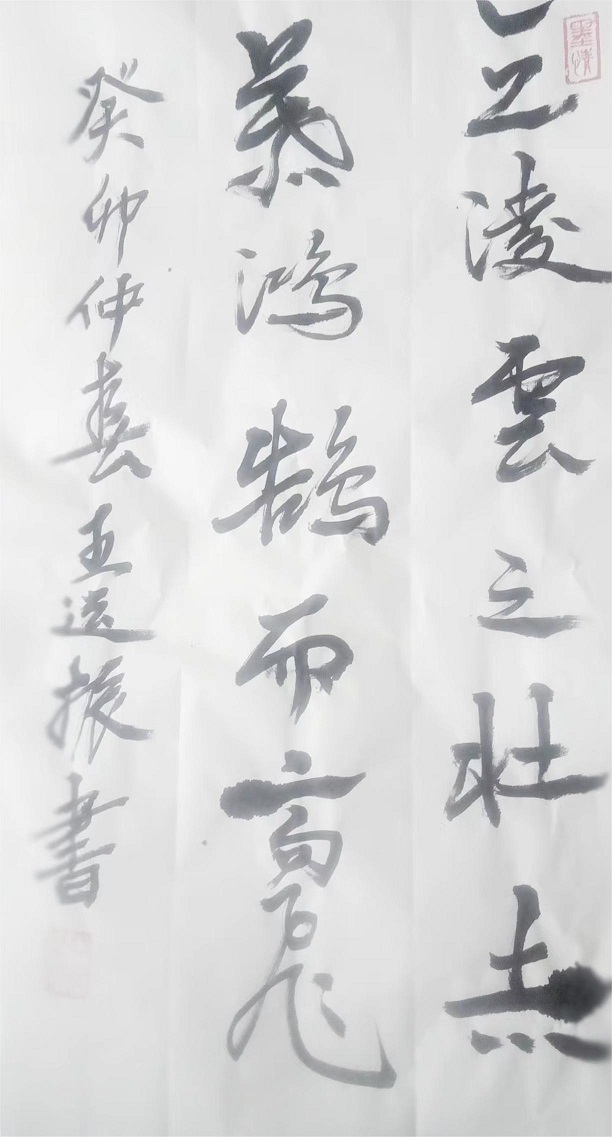 凌雲之壯志
慕鴻鵠而高飛
癸卯仲春王振書
墨情